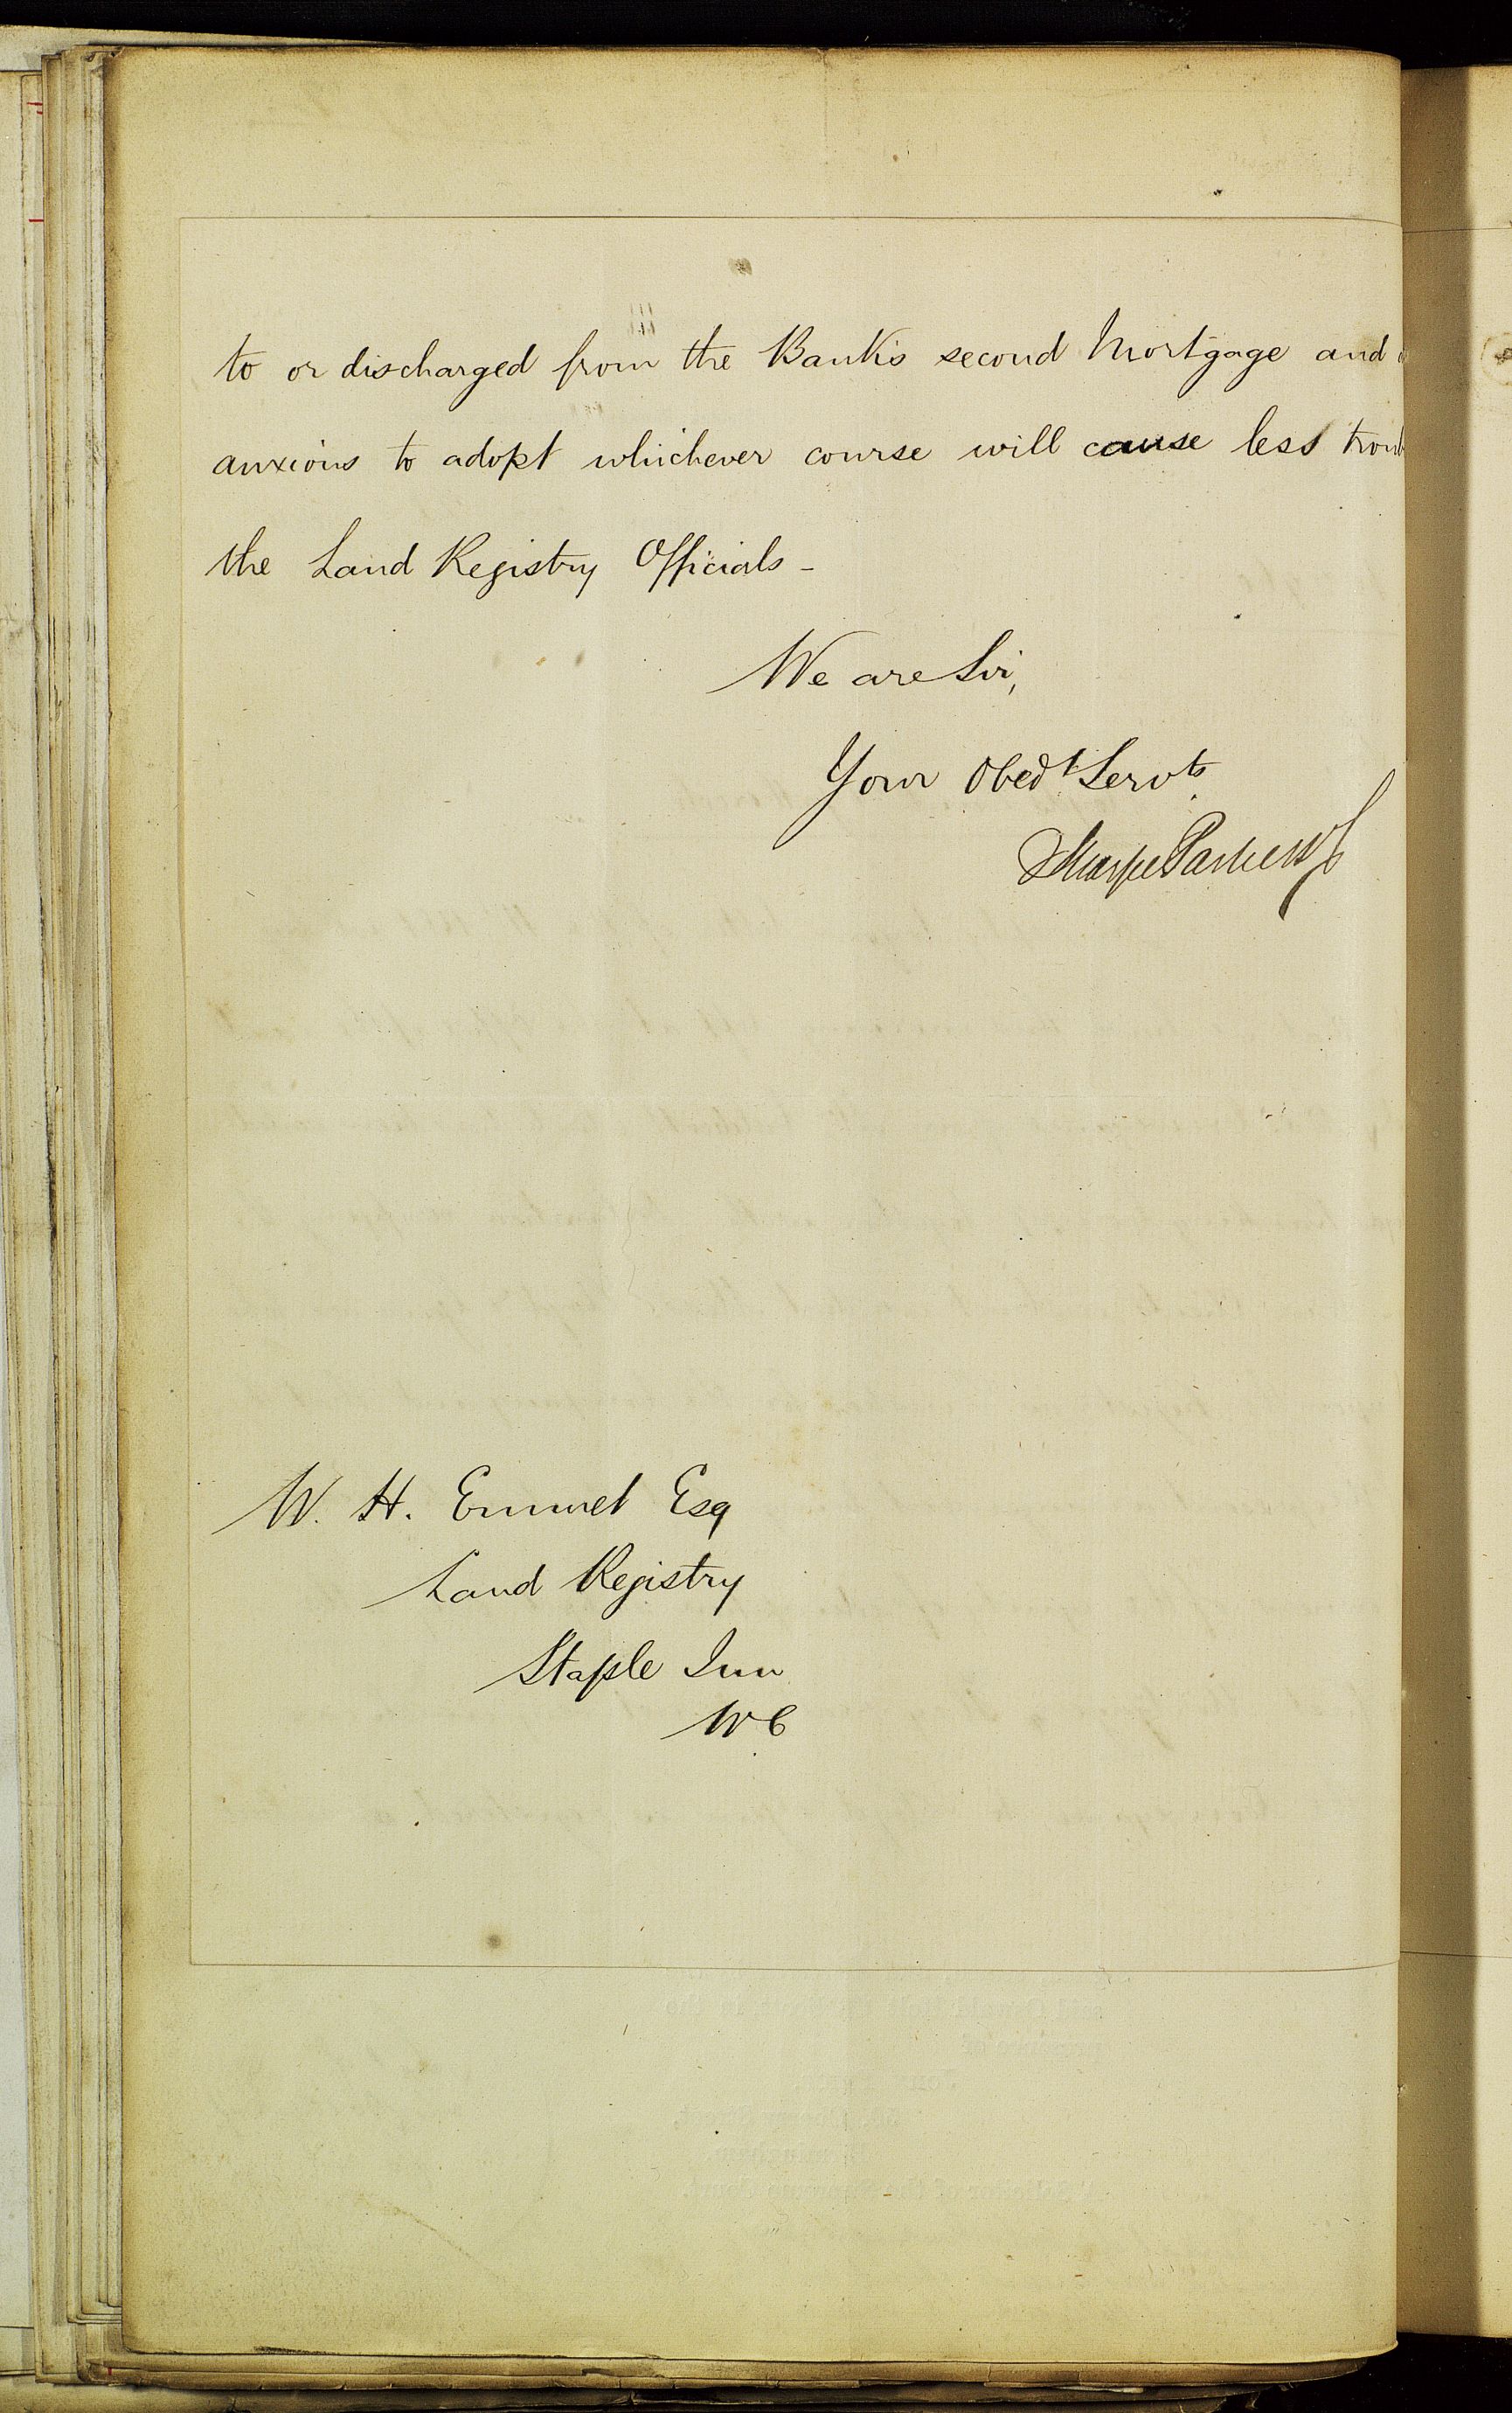 to or discharged from the Bank's second Mortgage and
anxious to adopt whichever course will cause less
the Land Registry Officials -
We are Sir,
Your Obedt Servts
W. H. Emmet Esq
Land Registry
Staple Inn
WC